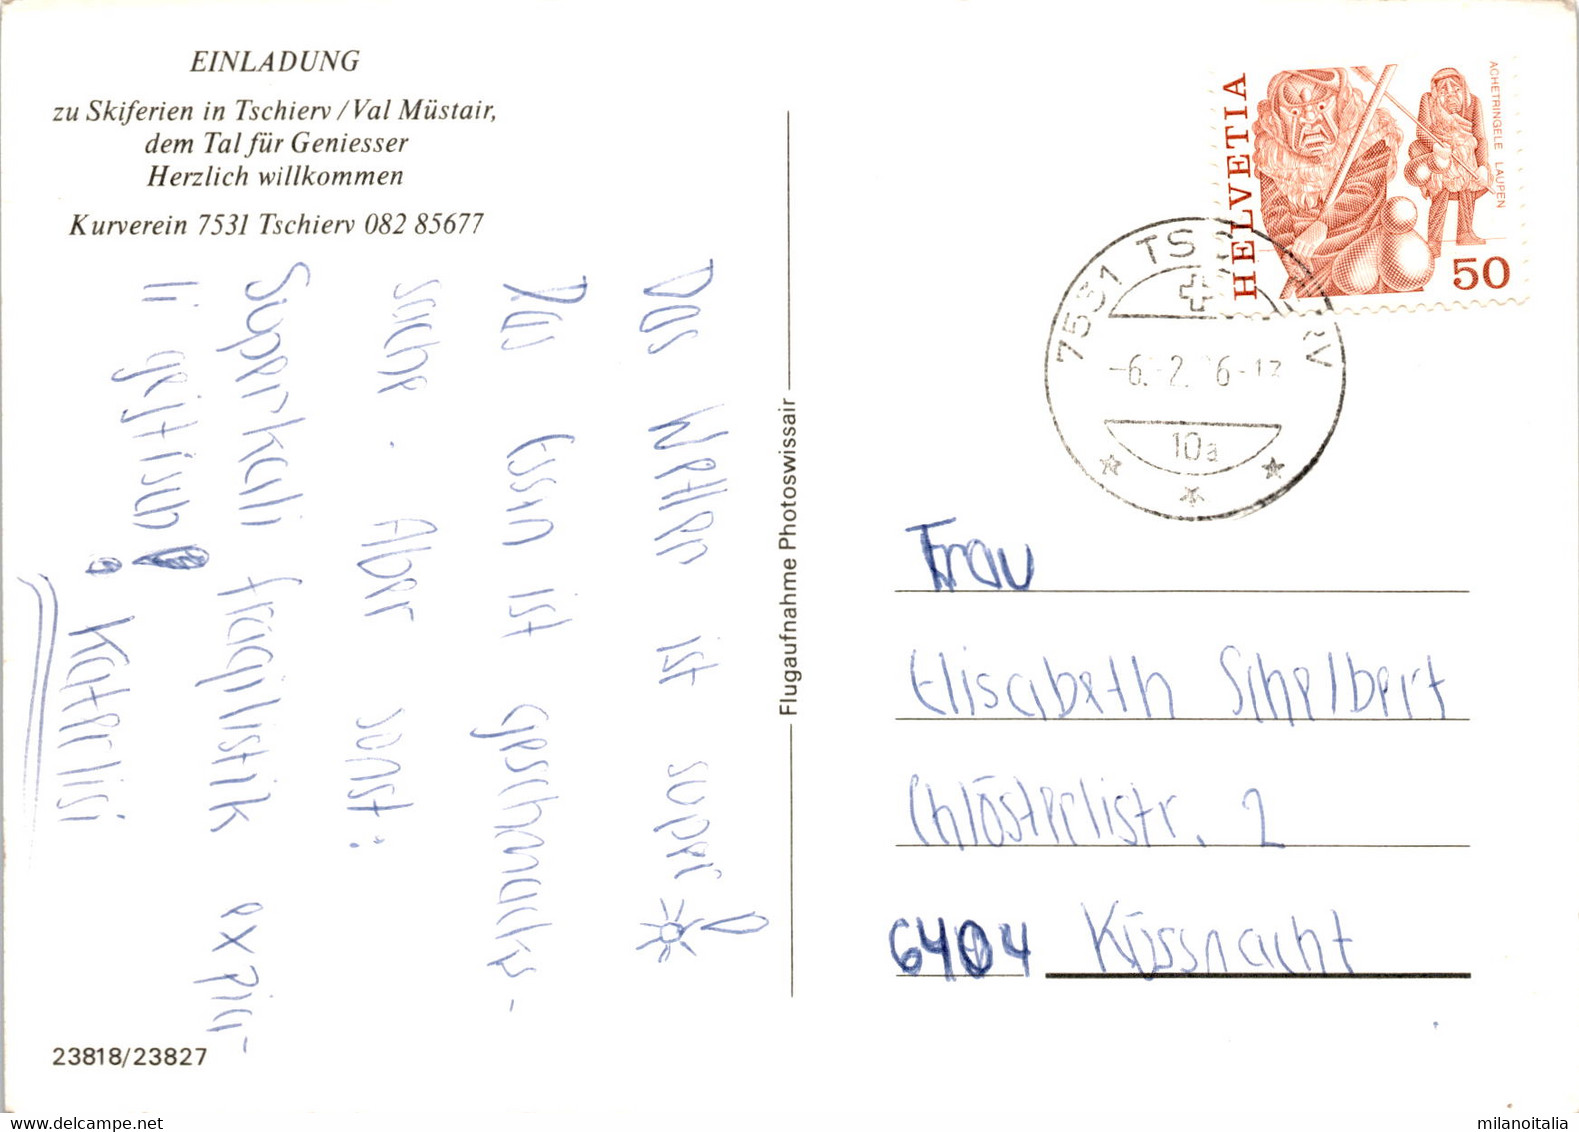 EINLADUNG
zu Skiferien in Tschierv / Val Müstair,
dem Tal für Geniesser
Herzlich willkommen
Kurverein 7531 Tschierv 082 85677
Das Wetter ist super!
Das Essen ist geschmacks-
sache. Aber sonst:
Superkali fragilistik expia-
li getisch!
Katerlisi
23818/23827
Flugaufnahme Photoswissair
HELVETIA
ACHETRINGELE LAUPEN
50
7531 TSCHIERV
10a
Frau
Elisabeth Schelbert
Chlösterlistr. 2
6404 Küssnacht
milanoitalia